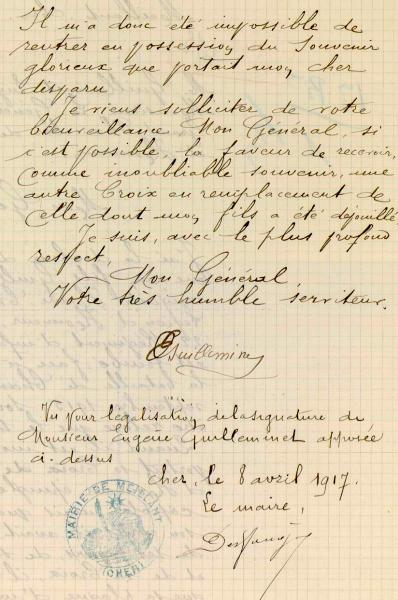 Il m'a donc été impossible de
rentrer en possession du Souvenir
glorieux que portait mon cher
disparu
Je viens solliciter de votre
bienveillance Mon Général, si
c'est possible, la faveur de recevoir,
comme inoubliable souvenir, une
autre Croix en remplacement de
celle dont mon fils a été dépouillé
Je suis, avec le plus profond
respect,
Mon Général
Votre très humble serviteur.
Vu pour légalisation de la signature de
Monsieur Eugène Guillemmet apposée
ci-dessus
cher, le 8 avril 1917.
Le maire,
MAIRIE DE MEILLANT
(CHER)